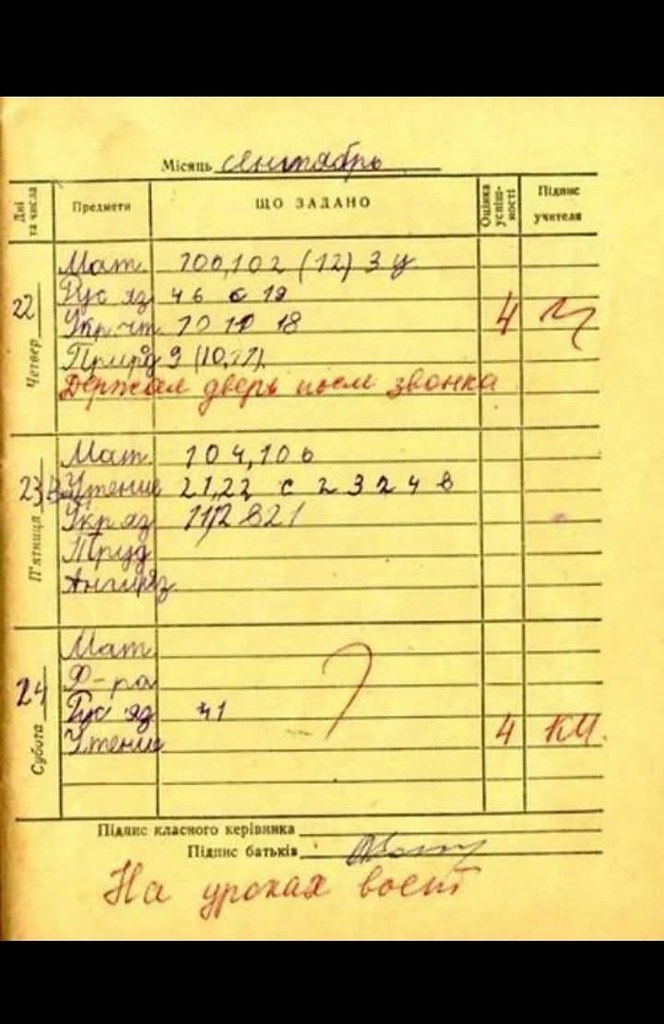 Місяць сентябрь
Дні та числа Предмети ЩО ЗАДАНО Оцінка успіш-ності Підпис учителя
22 Четвер
Мат. 100,102 (12) 3 у
Рус яз 46 с 19
Укр.чт. 10 18 4
Прирд 9 (10,11).
Держал дверь после звонка
23 П'ятница
Мат. 104,106
Чтение 21,22 с 23 24 в
Укр яз
Труд
Англ.яз
24 Субота
Мат.
Ф-ра
Рус яз 41
Чтение 4 КМ.
Підпис класного керівника
Підпис батьків
На уроках воет